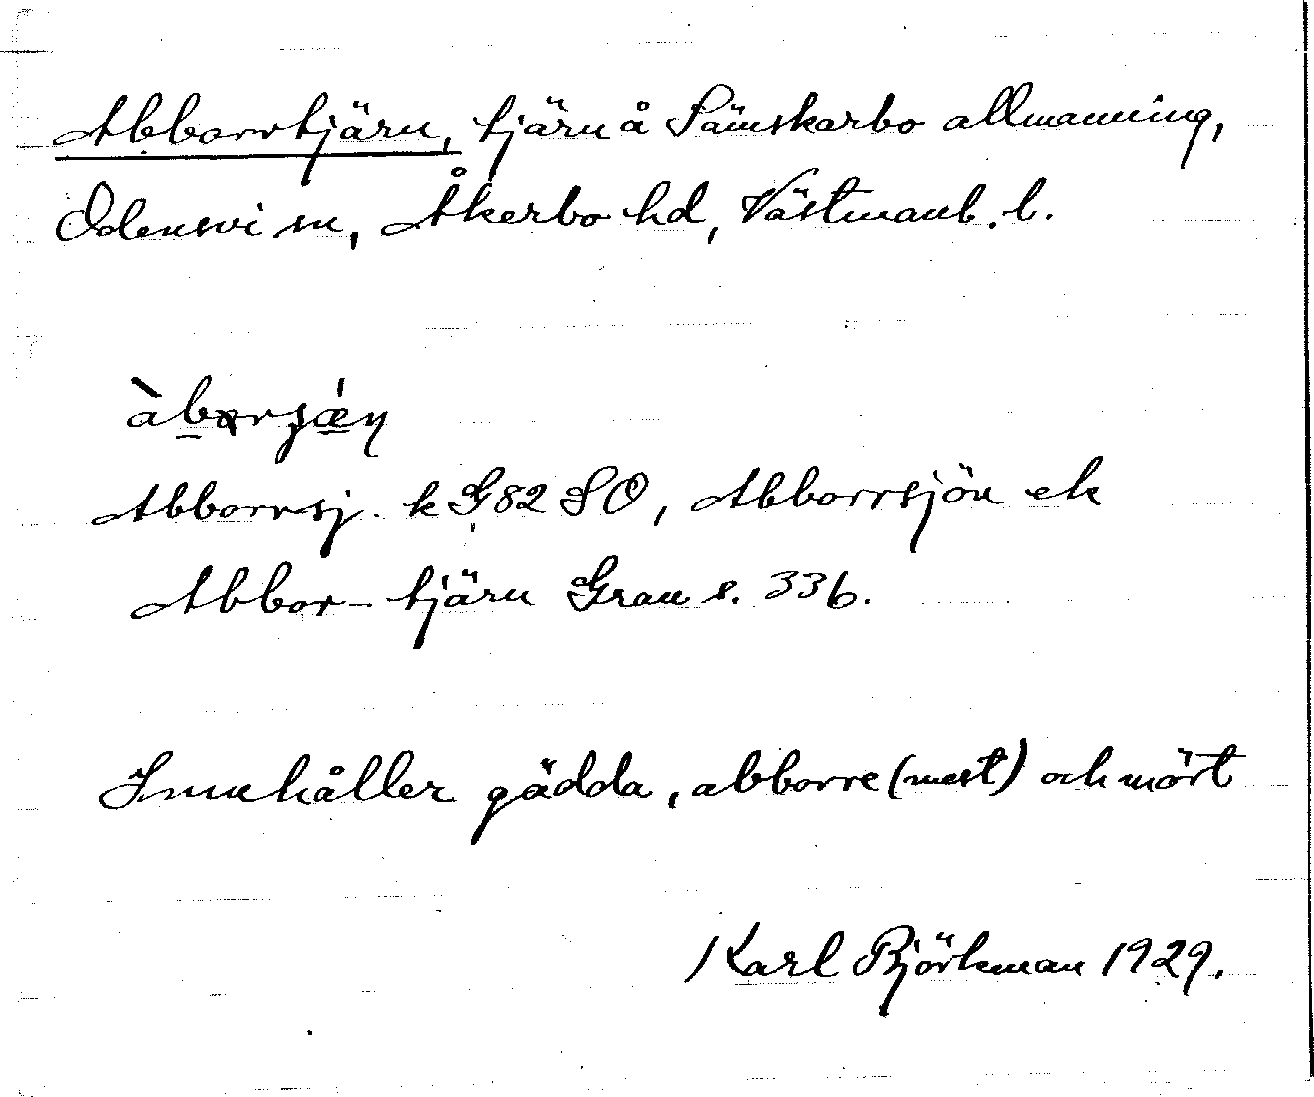 Abborrtjärn, tjärn å Sämskarbo allmanning,
Odensvi sn, Åkerbo hd, Västmanl. l.
Abborrsj. k G82 SO, Abborrsjön ek
Abbor-tjärn Grau s. 336.
Innehåller gädda, abborre (mest) och mört
Karl Björkman 1929.